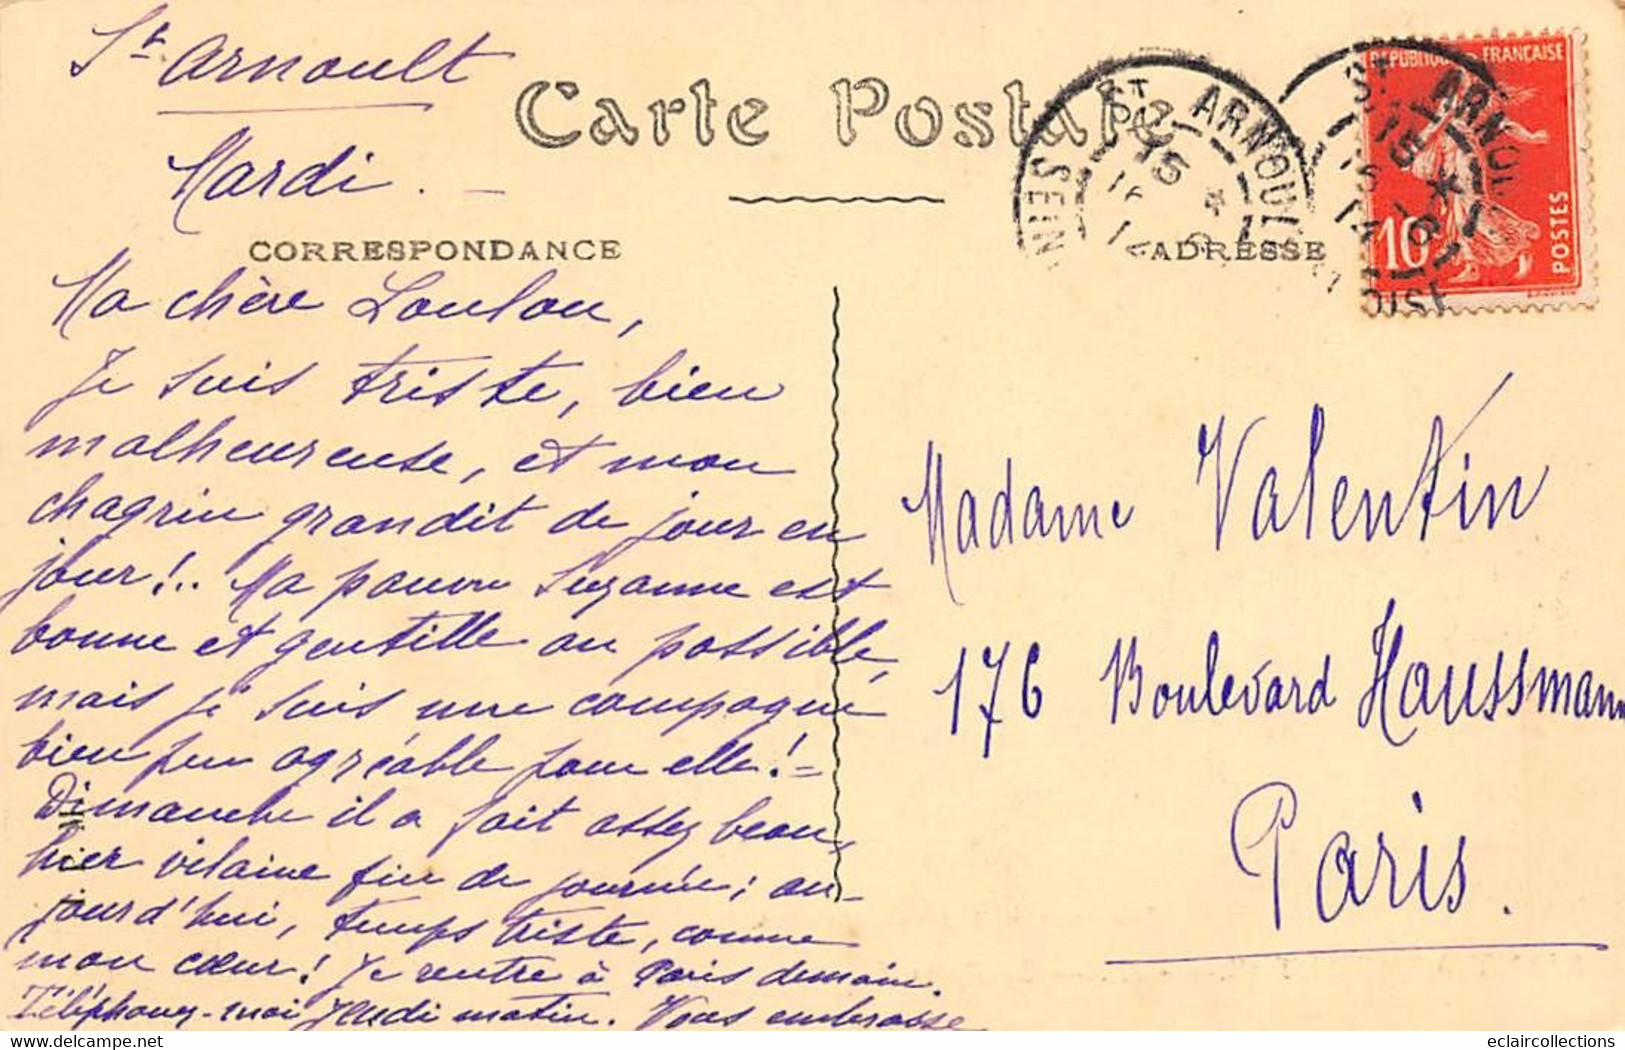 St Arnoult
Mardi. -
Carte Postale
CORRESPONDANCE
ADRESSE
ST ARNOULT
SEINE
15
16
ST ARNOULT
15
RÉPUBLIQUE FRANÇAISE
10
POSTES
Ma chère Loulou,
Je suis triste, bien
malheureuse, et mon
chagrin grandit de jour en
jour!.. Ma pauvre Suzanne est
bonne et gentille au possible,
mais je suis une compagnie
bien peu agréable pour elle! =
Dimanche il a fait assez beau,
hier vilaine fin de journée; au-
jourd'hui, temps triste, comme
mon cœur! Je rentre à Paris demain.
Téléphonez-moi Jeudi matin. Vous embrasse
Madame Valentin
176 Boulevard Haussmann
Paris.
eclaircollections
www.delcampe.net